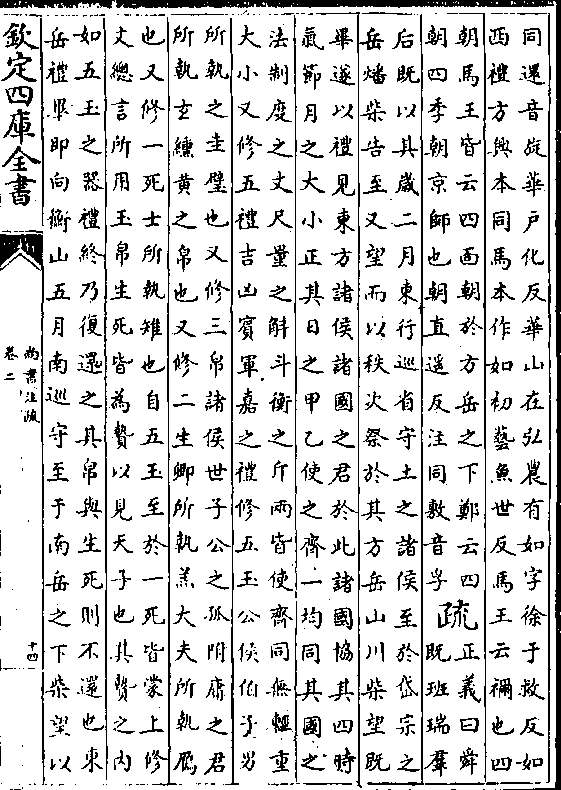 同還音旋華戶化反華山在弘農有如字徐于救反如
西禮方興本同馬本作如初藝魚世反馬王云禰也四
朝馬王皆云四面朝於方岳之下鄭云四
朝四季朝京師也朝直遙反注同敷音孚
疏
正義曰舜
既班瑞羣
后既以其歲二月東行巡省守土之諸侯至於岱宗之
岳燔柴告至又望而以秩次祭於其方岳山川柴望既
畢遂以禮見東方諸侯諸國之君於此諸國協其四時
氣節月之大小正其日之甲乙使之齊一均同其國之
法制度之丈尺量之斛斗衡之斤兩皆使齊同無輕重
大小又修五禮吉凶賓軍嘉之禮修五玉公侯伯子男
所執之圭璧也又修三帛諸侯世子公之孤附庸之君
所執玄纁黃之帛也又修二生卿所執羔大夫所執鴈
也又修一死士所執雉也自五玉至於一死皆蒙上修
文總言所用玉帛生死皆為贄以見天子也其贄之內
如五玉之器禮終乃復還之其帛與生死則不還也東
岳禮畢即向衡山五月南巡守至于南岳之下柴望以
欽定四庫全書
尚書注疏
卷二
十四